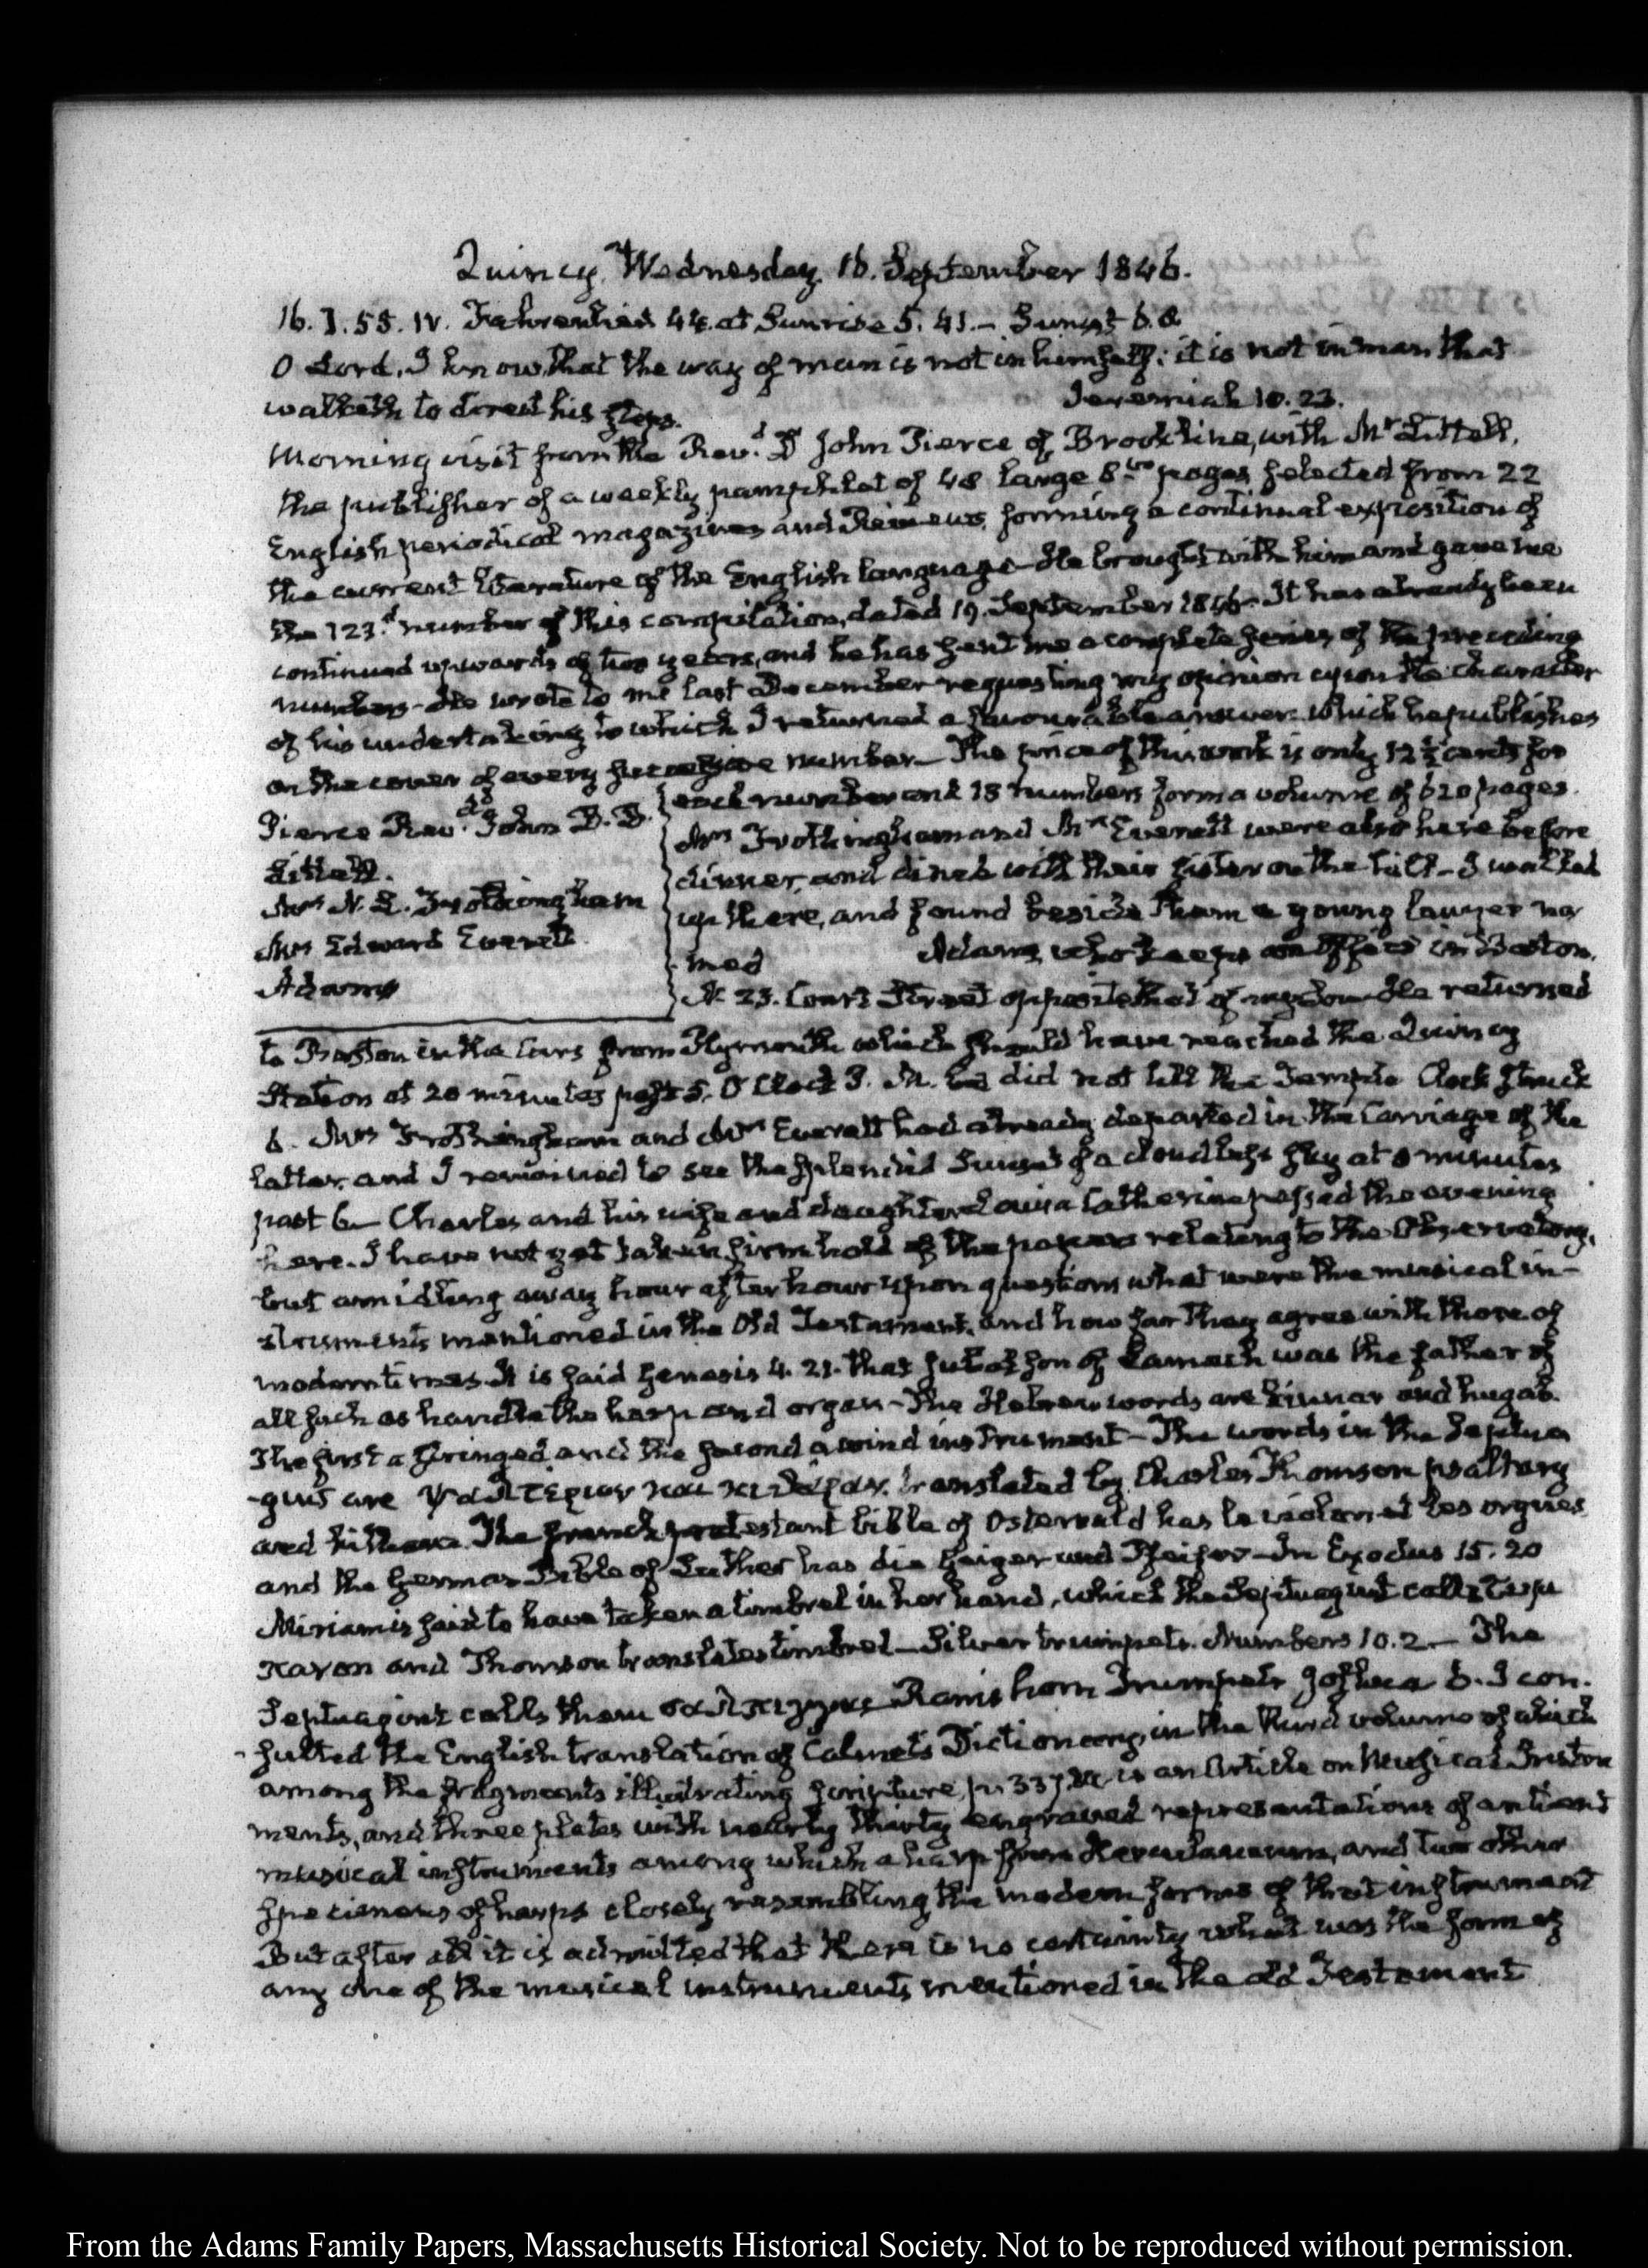 Quincy. Wednesday. 16. September 1846.
16. I. 55. IV. Fahrenheit 44. at Sunrise 5. 41.— Sunset 6. 8
O Lord, I know, that the way of man is not in himself: it is not in man that
walketh to direct his steps. Jeremiah 10. 23.
Morning visit from the Rev.d Dr John Pierce of Brookline, with Mr Littell,
the publisher of a weekly pamphlet of 48 large 8vo pages selected from 22
English periodical magazines and Reviews, forming a continual exposition of
the current literature of the English language— He brought with him and gave me
the 123.d number of this compilation, dated 19. September 1846— It has already been
continued upwards of two years, and he has sent me a complete series of the preceding
numbers— He wrote to me last December requesting my opinion upon the character
of his undertaking to which I returned a favourable answer which he publishes
on the cover of every successive number— The price of this work is only 12½ cents for
Pierce Rev.d John D.D.
Littell.
Mrs N. L. Frothingham
Mrs Edward Everett.
Adams
each number and 13 numbers form a volume of 620 pages.
Mrs Frothingham and Mrs Everett were also here before
dinner, and dined with their sister on the hill— I walked
up there, and found beside them a young lawyer na
med Adams, who keeps an Office in Boston,
N. 23. Court Street opposite that of my son— He returned
to Boston in the Cars from Plymouth which should have reached the Quincy
Station at 20 minutes past 5. O'Clock P. M. but did not till the Temple Clock struck
6. Mrs Frothingham and Mrs Everett had already departed in the Carriage of the
latter, and I remained to see the splendid Sunset of a cloudless sky at 8 minutes
past 6— Charles and his wife and daughter Louisa Catherine passed the evening
here. I have not yet taken firm hold of the papers relating to the Observatory,
but am idling away hour after hour upon questions what were the musical in-
struments mentioned in the Old Testament, and how far they agree with those of
modern times. It is said Genesis 4. 21. that Jubal son of Lamech was the father of
all such as handle the harp and organ— The Hebrew words are kinnar and hugab.
The first a stringed and the second a wind instrument— The words in the Septua
-gint are ψαλτεριον και κιθαραν. translated by Charles Thomson psaltery
and kithara. The french protestant bible of Ostervald has le violon et les orgues
and the German Bible of Luther has die Geiger und Pfeifer— In Exodus 15. 20
Miriam is said to have taken a timbrel in her hand, which the Septuagint calls τυμ
πανον and Thomson translates timbrel— Silver trumpets. Numbers 10. 2.— The
Septuagint calls them σαλπιγγας Rams horn Trumpets Joshua 6. I con.
-sulted the English translation of Calmet's Dictionary, in the third volume of which
among the fragments illustrating scripture, p. 337 &c is an Article on Musical Instru
ments, and three plates with nearly thirty engraved representations of antient
musical instruments among which a harp from Herculaneum, and two other
specimens of harps closely resembling the modern forms of that instrument
But after all it is admitted that there is no certainty what was the form of
any one of the musical instruments mentioned in the old Testament
From the Adams Family Papers, Massachusetts Historical Society. Not to be reproduced without permission.